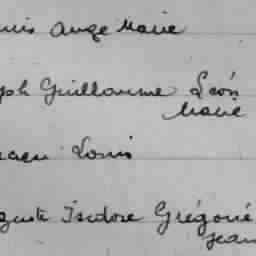 Ange Marie
Guillaume Léon
Marie
Louis
Isidore Grégoire
Jean